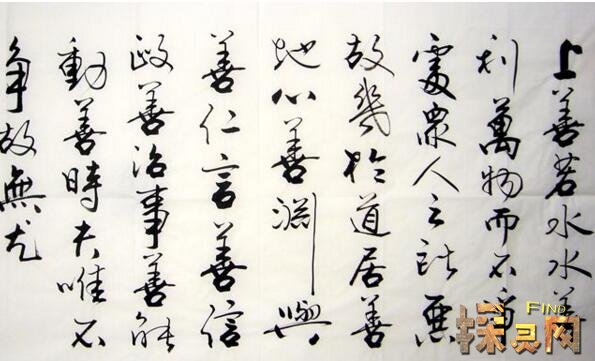 上善若水水善
利萬物而不争
處衆人之所惡
故幾於道居善
地心善淵與
善仁言善信
政善治事善能
動善時夫唯不
争故無尤
FIND
探灵网